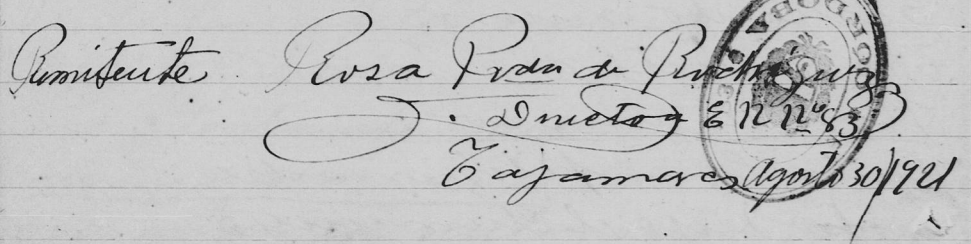 Remitente Rosa Roda de Rodríguez
Directora E N Nº 83
Tajamares Agosto 30/1921
CORDOBA